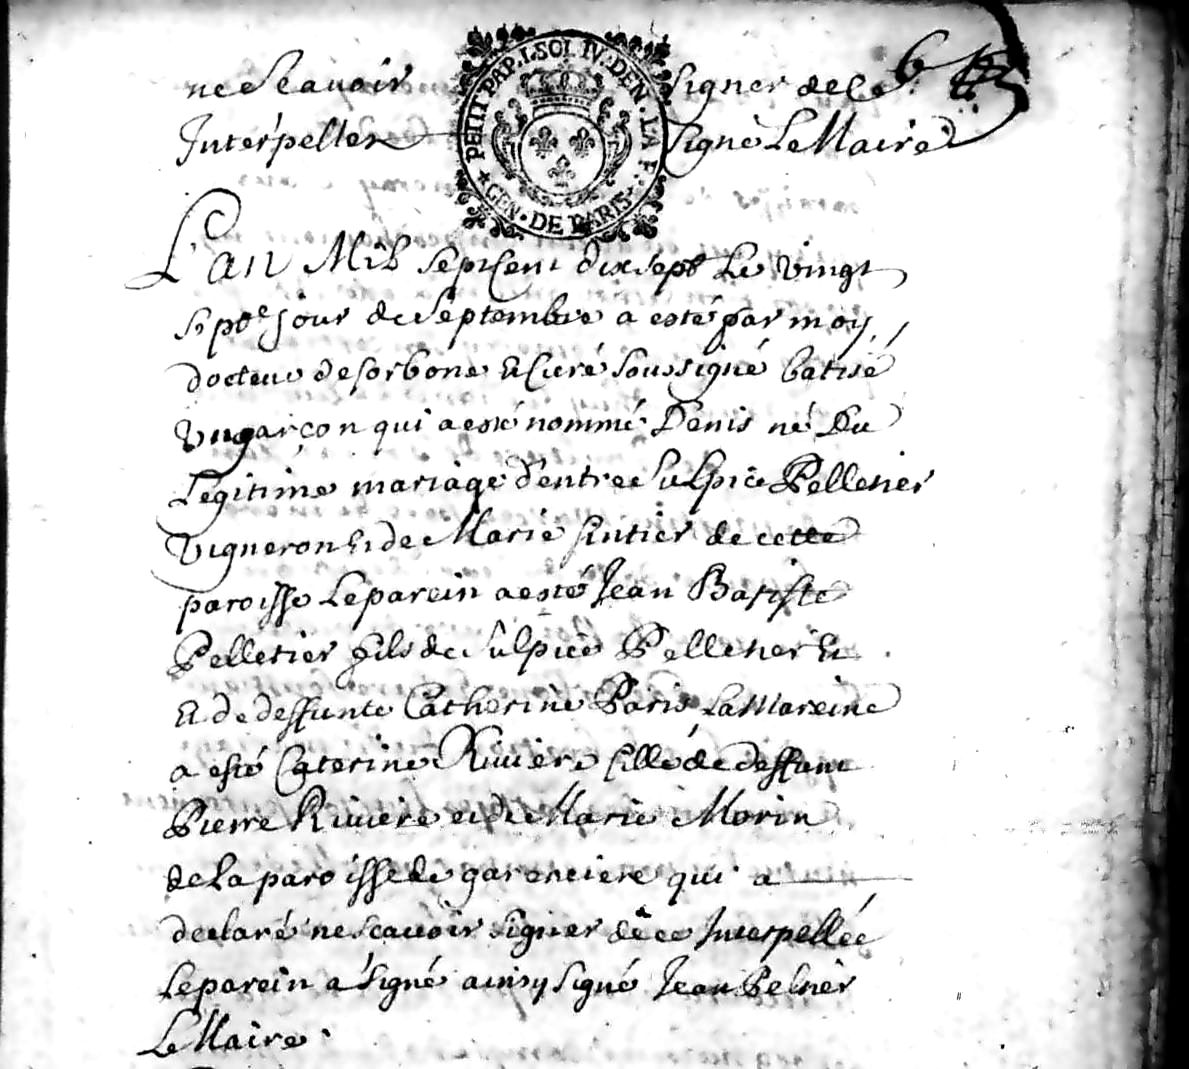 ne Scavoir signer de ce
Interpeller signé Le Maire
PETIT PAP. 1. SOL IV. DEN. LA F. GEN. DE PARIS
L'an Mil sept cent dix sept Le vingt
septe jour de Septembre a esté par moy
docteur de sorbone Et Curé soussigné batisé
Un garçon qui a esté nommé Denis né Du
Legitime mariage d'entre Sulpice Pelletier
Vigneron et de Marie Sentier de cette
paroisse Le parein a esté Jean Batiste
Pelletier fils de Sulpice Pelletier Et
Et de deffunte Catherine Paris La Mareine
a esté Caterine Riviere fille de deffunt
Pierre Riviere et de Marie Morin
de La paroisse de garenciere qui a
declaré ne scavoir signer de ce Interpellée
Le parein a signé ainsy signé Jean Peltier
Le Maire